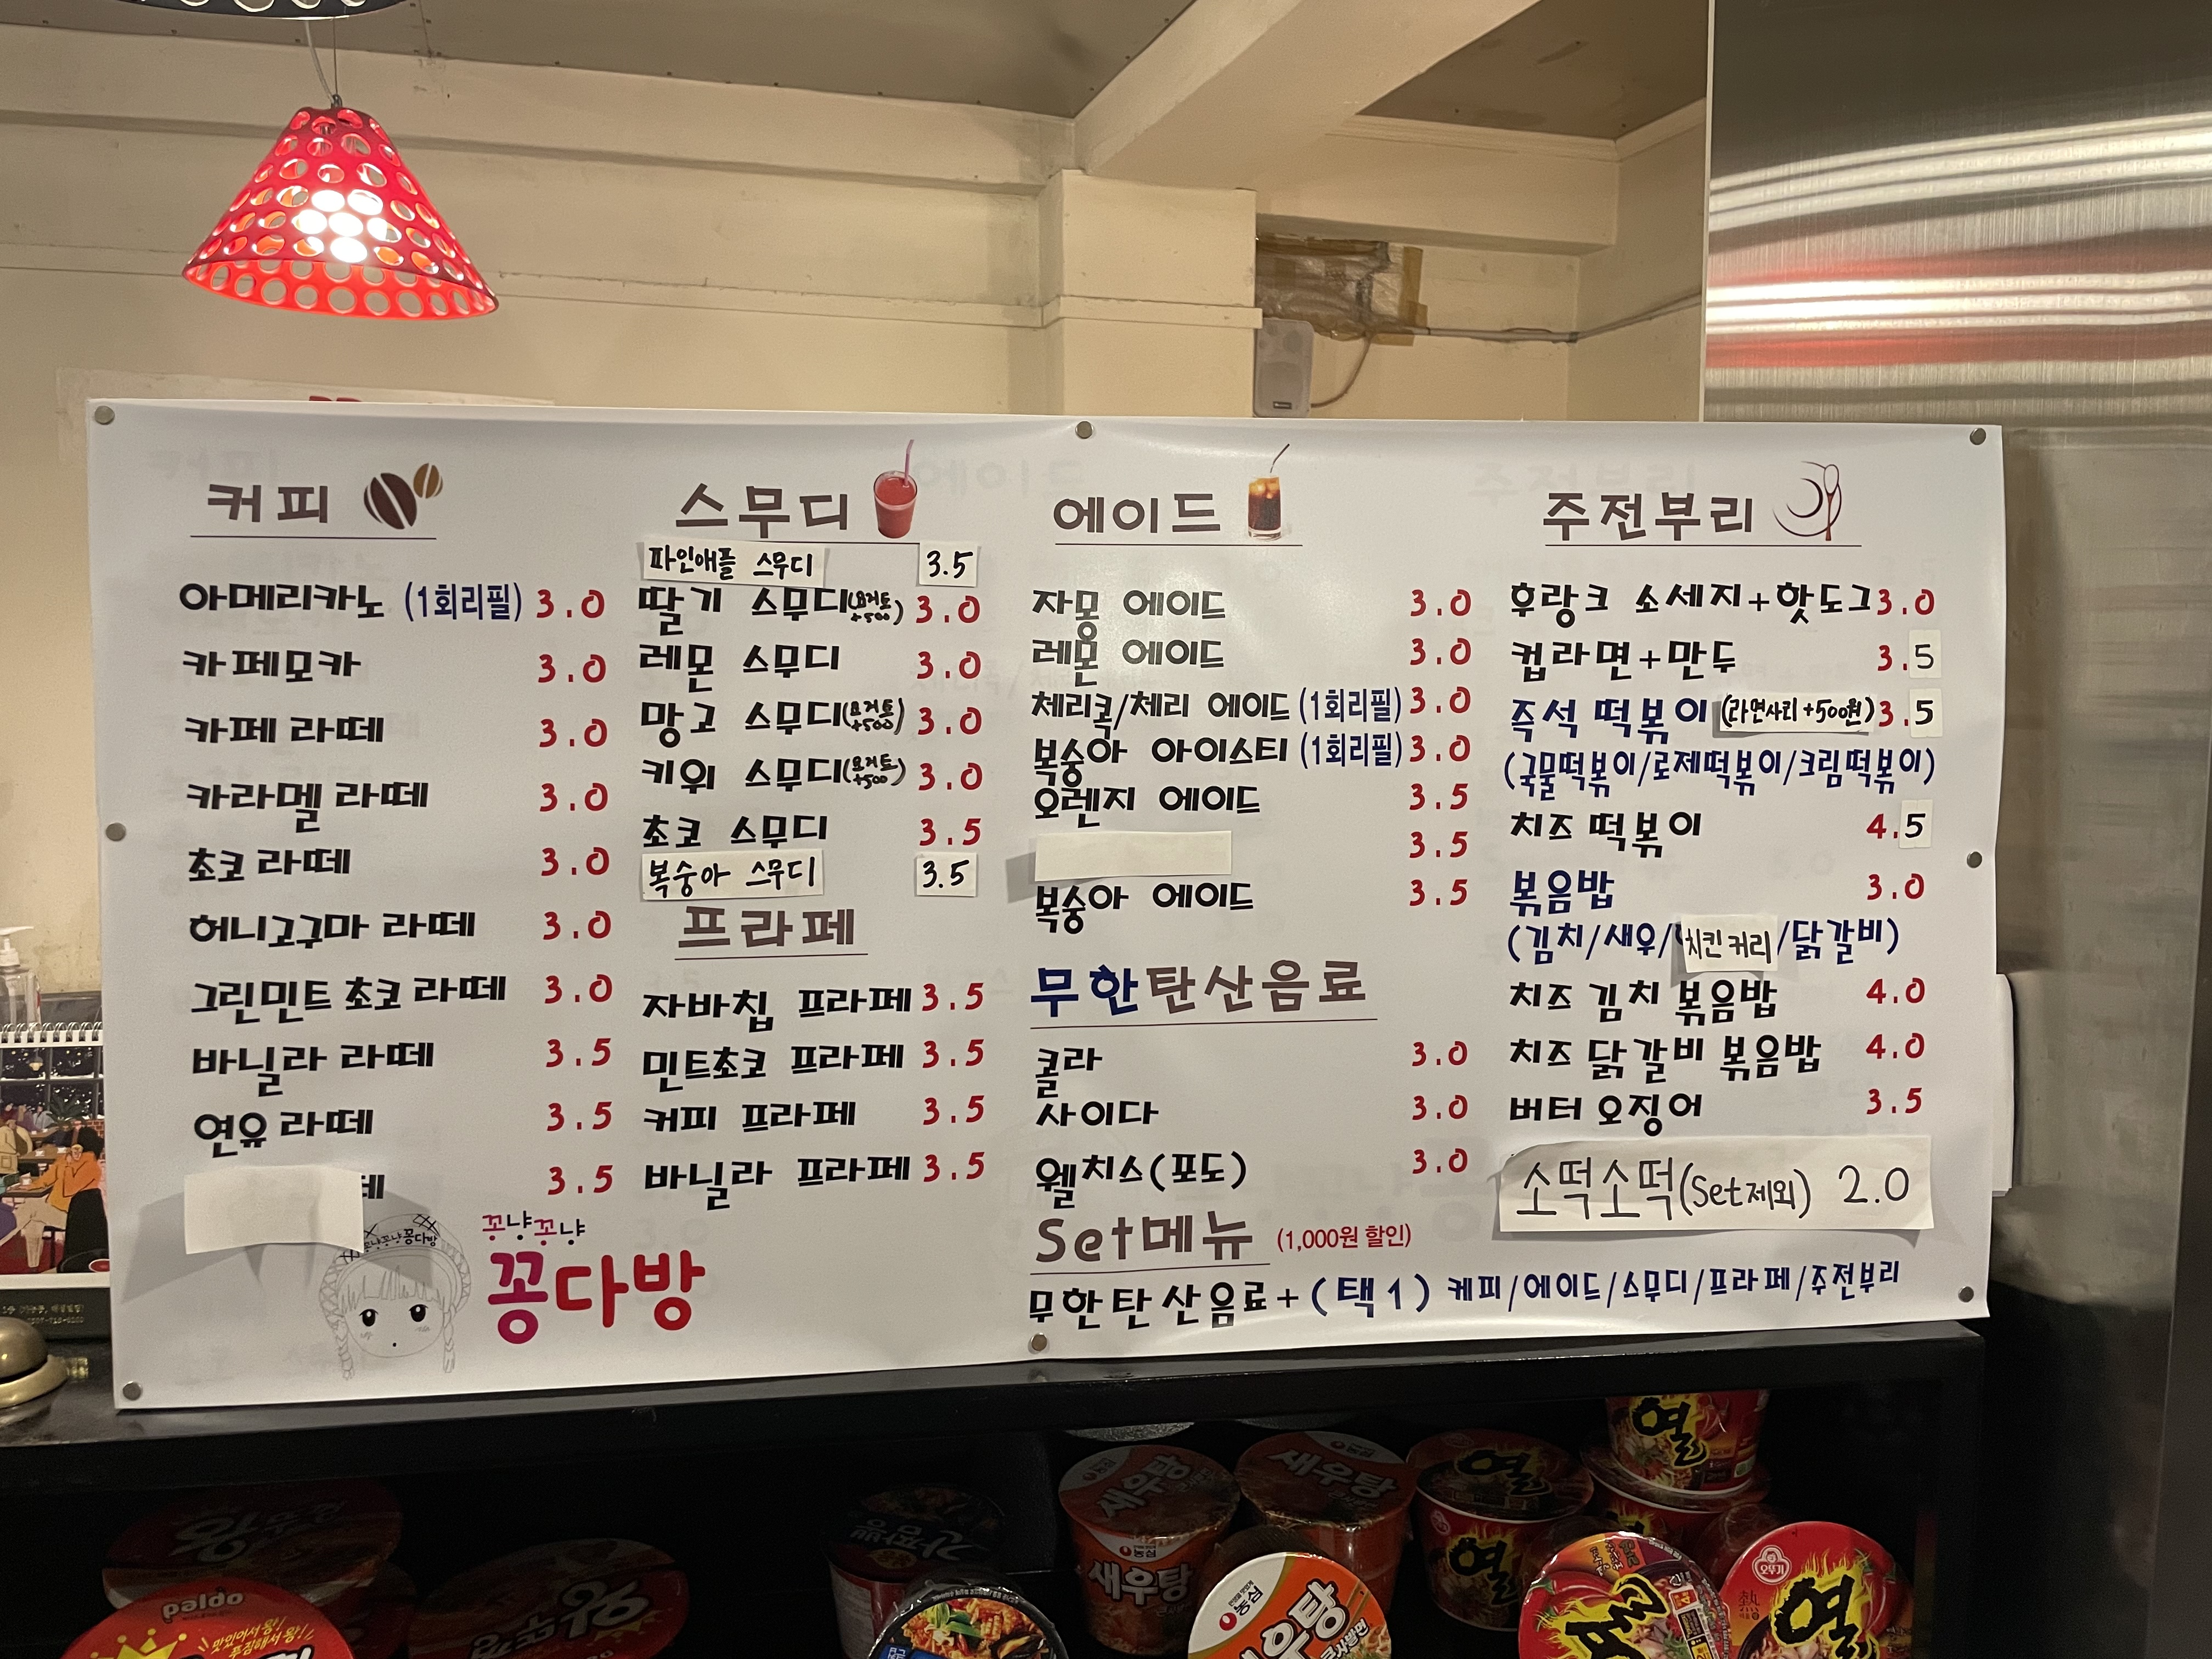 커피
아메리카노 (1회리필) 3.0
카페모카 3.0
카페 라떼 3.0
카라멜 라떼 3.0
초코 라떼 3.0
허니고구마 라떼 3.0
그린민트 초코 라떼 3.0
바닐라 라떼 3.5
연유 라떼 3.5
떼 3.5
꽁냥꽁냥
꽁다방
스무디
파인애플 스무디 3.5
딸기 스무디(요거트 +500) 3.0
레몬 스무디 3.0
망고 스무디(요거트 +500) 3.0
키위 스무디(요거트 +500) 3.0
초코 스무디 3.5
복숭아 스무디 3.5
프라페
자바칩 프라페 3.5
민트초코 프라페 3.5
커피 프라페 3.5
바닐라 프라페 3.5
에이드
자몽 에이드 3.0
레몬 에이드 3.0
체리콕/체리 에이드 (1회리필) 3.0
복숭아 아이스티 (1회리필) 3.0
오렌지 에이드 3.5
3.5
복숭아 에이드 3.5
무한탄산음료
콜라 3.0
사이다 3.0
웰치스(포도) 3.0
Set메뉴 (1,000원 할인)
무한탄산음료+(택1) 케피/에이드/스무디/프라페/주전부리
주전부리
후랑크 소세지+핫도그 3.0
컵라면+만두 3.5
즉석 떡볶이 (라면사리 +500원) 3.5
(국물떡볶이/로제떡볶이/크림떡볶이)
치즈 떡볶이 4.5
볶음밥 3.0
(김치/새우/치킨커리/닭갈비)
치즈 김치 볶음밥 4.0
치즈 닭갈비 볶음밥 4.0
버터 오징어 3.5
소떡소떡(Set제외) 2.0
paldo
맛있어서 왕!
푸짐해서 왕!
농심
새우탕
농심
새우탕
열
열
열
오뚜기
열